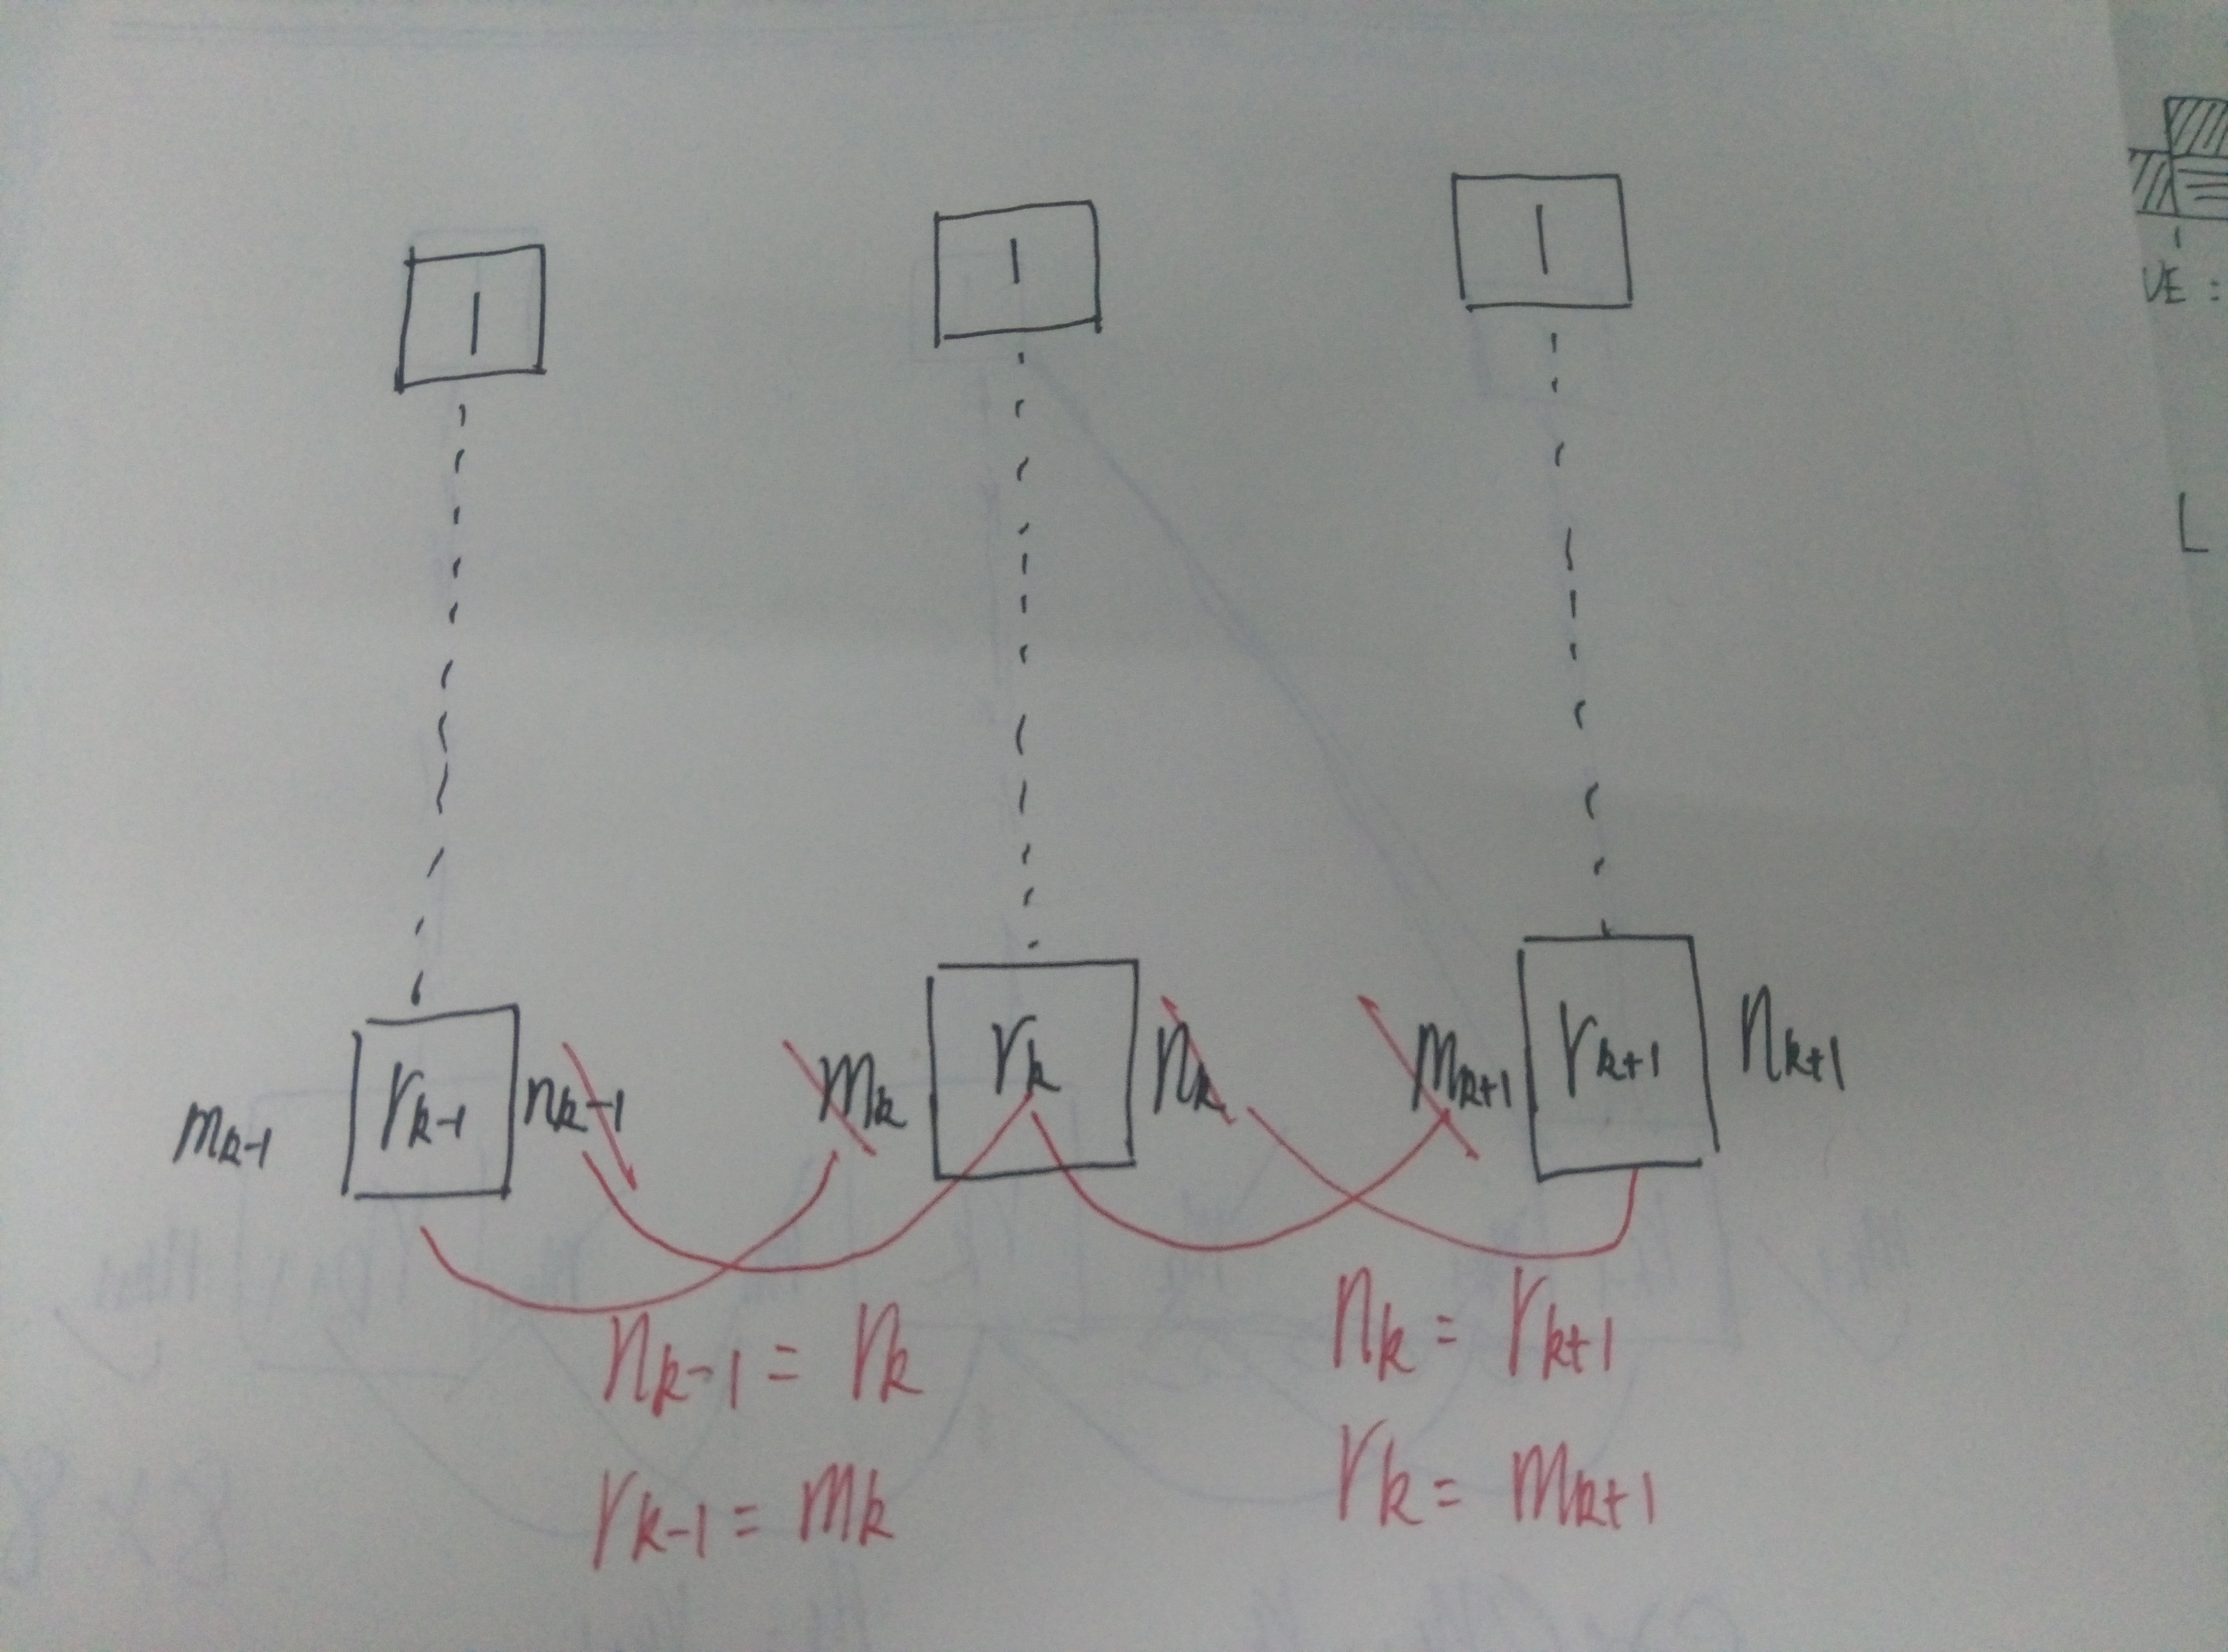 1 1 1
m_{k-1} r_{k-1} n_{k-1} m_k r_k n_k m_{k+1} r_{k+1} n_{k+1}
n_{k-1} = r_k
r_{k-1} = m_k
n_k = r_{k+1}
r_k = m_{k+1}
VE :
L